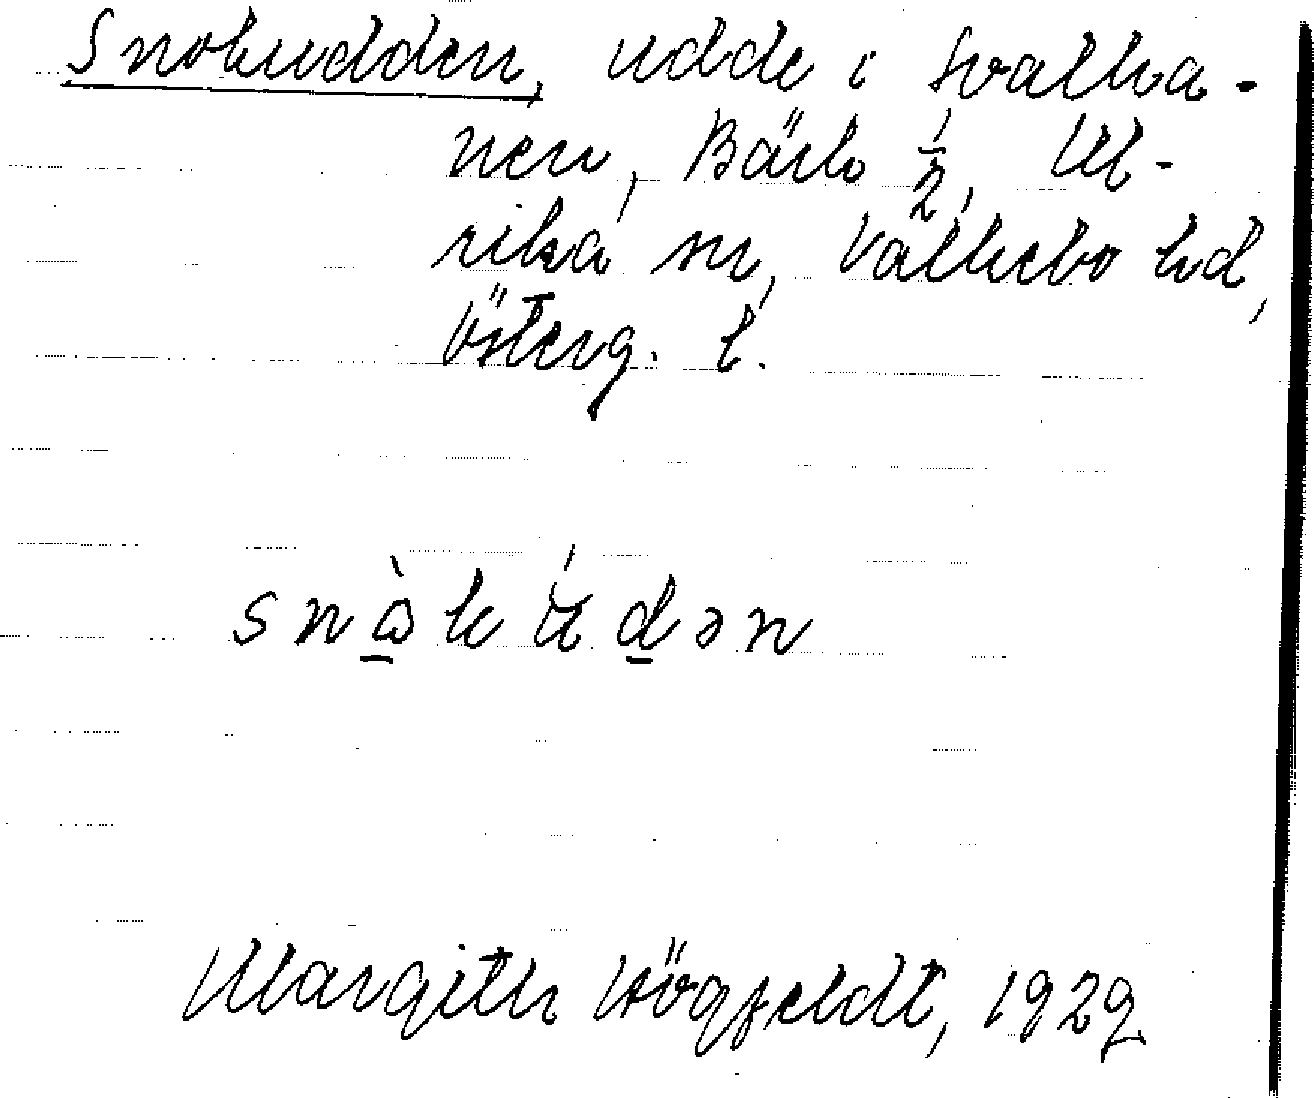 Snokudden, udde i Svalha-
nen, ½, Ul-
rika sn, Valkebo hd,
Österg. l.
snɷ̱̀kʉ́ḏən
Margith Högfeldt, 1929